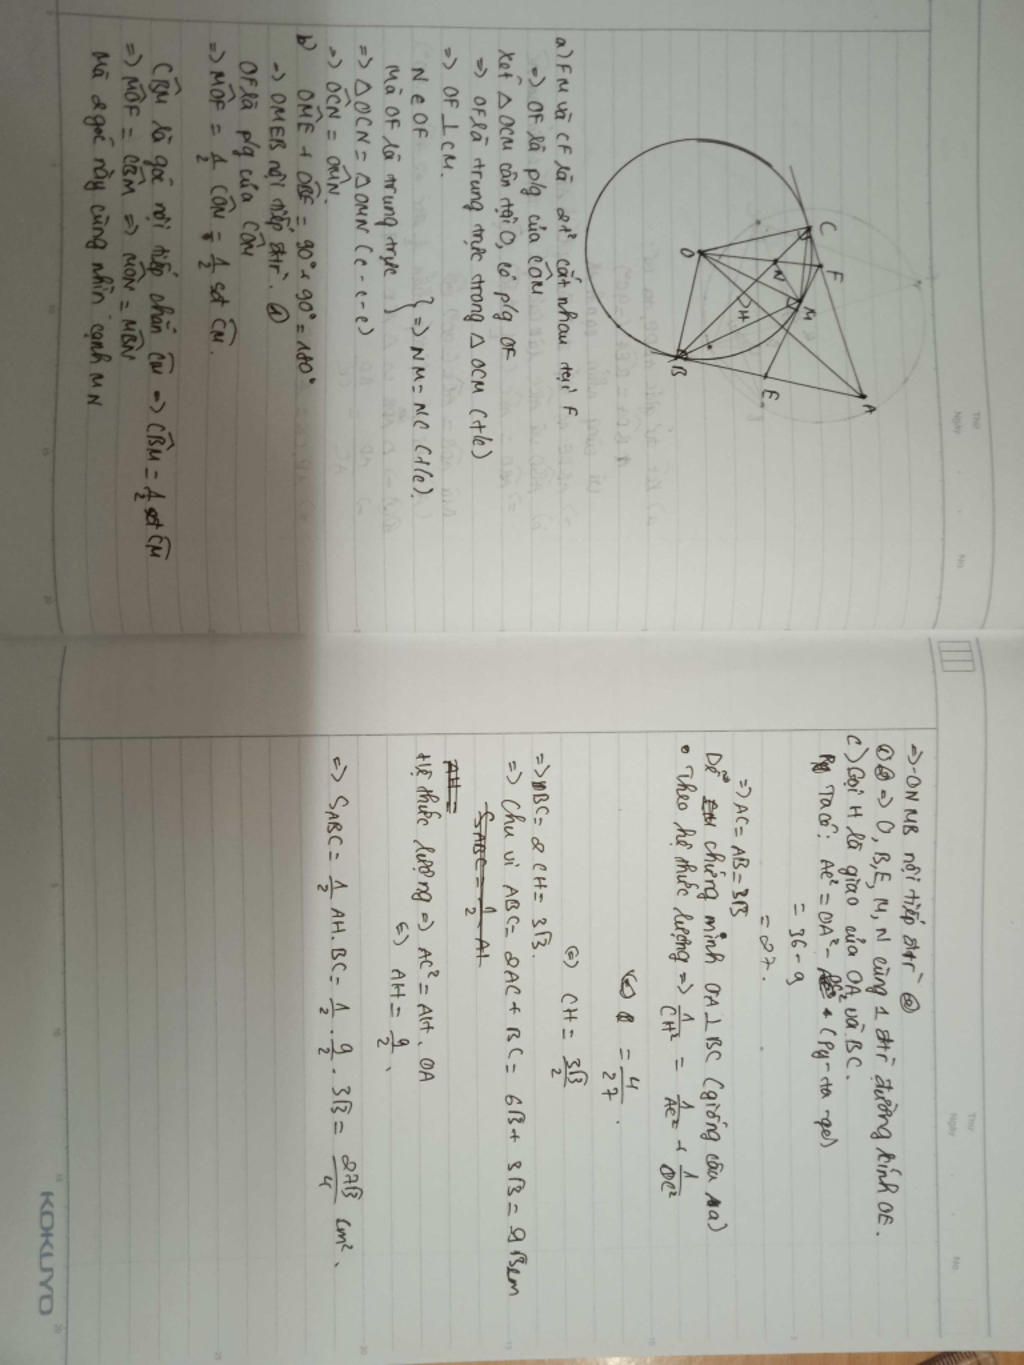 Thứ
Ngày
No.
O
C
F
N
M
H
B
E
A
a) FM và CF là 2t² cắt nhau tại F
=> OF là p/g của CÔM
Xét △OCM cân tại O, có p/g OF
=> OF là trung trực trong △OCM (t/c)
=> OF ⊥ CM.
N ∈ OF
Mà OF là trung trực } => NM = NC (t/c).
=> △OCN = △OMN (c-c-c)
=> OĈN = OM̂N.
b) OM̂E + OB̂E = 90° + 90° = 180°
=> OMEB nội tiếp đtr². ①
OF là p/g của CÔM
=> MÔF = 1/2 CÔM = 1/2 sđ CM.
CB̂M là góc nội tiếp chắn CM => CB̂M = 1/2 sđ CM
=> MÔF = CB̂M => MÔN = MB̂N
Mà 2 góc này cùng nhìn cạnh MN
Thứ
Ngày
No.
=> ONMB nội tiếp đtr² ②
①② => O, B, E, M, N cùng 1 đtr² đường kính OE.
c) Gọi H là giao của OA và BC.
Ta có: AC² = OA² - OC² (Py-ta-go)
= 36 - 9
= 27.
=> AC = AB = 3√3
Dễ chứng minh OA ⊥ BC (giống câu a)
• Theo hệ thức lượng => 1/CH² = 1/AC² + 1/OC²
= 4/27.
(=) CH = 3√3/2
=> BC = 2CH = 3√3.
=> Chu vi ABC = 2AC + BC = 6√3 + 3√3 = 9√3cm
SABC = 1/2 AH
AH =
Hệ thức lượng => AC² = AH.OA
(=) AH = 9/2.
=> SABC = 1/2 AH.BC = 1/2 . 9/2 . 3√3 = 27√3/4 cm².
KOKUYO